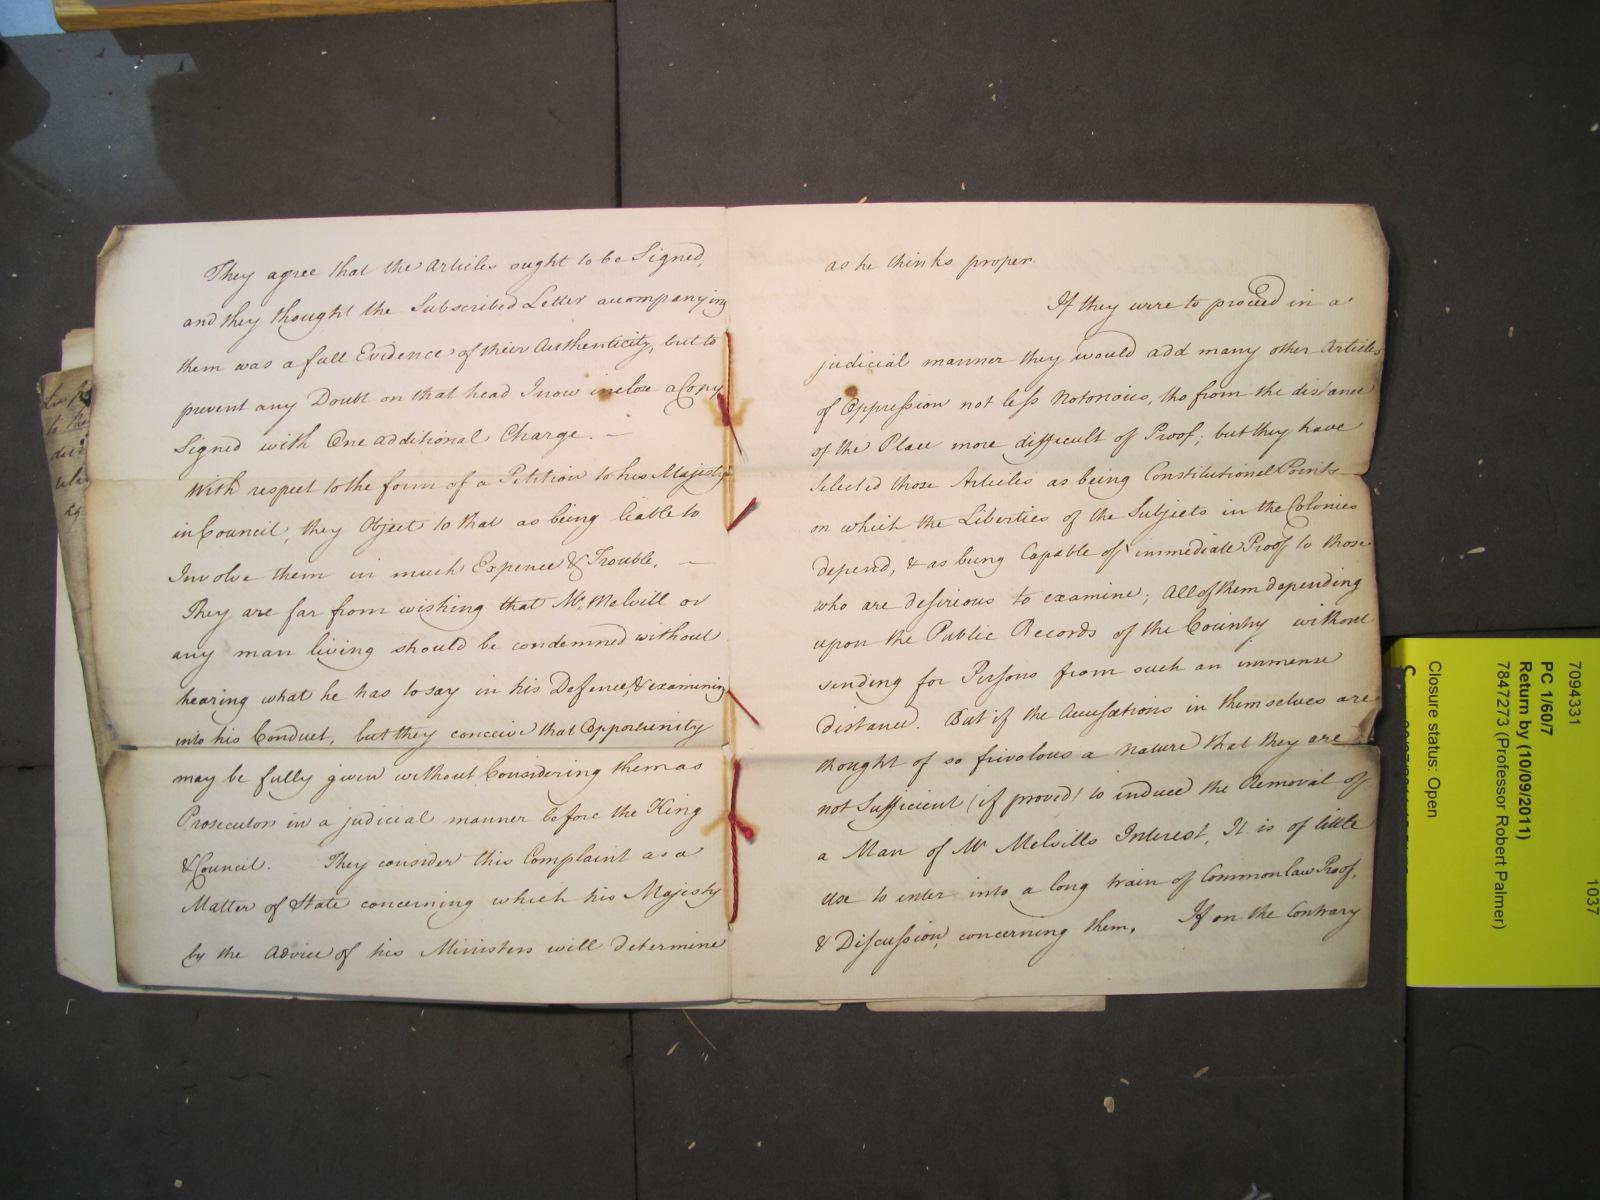 They agree that the Articles ought to be Signed,
and they thought the Subscribed Letter accompanying
them was a full Evidence of their Authenticity, but to
prevent any Doubt on that head I now inclose a Copy
Signed with One additional Charge. —
With respect to the form of a Petition to his Majesty
in Council, they Object to that as being liable to
Involve them in much Expence & Trouble. —
They are far from wishing that Mr. Melvill or
any man living should be condemned without
hearing what he has to say in his Defence, & examining
into his Conduct, but they conceive that Opportunity
may be fully given without Considering them as
Prosecutors in a judicial manner before the King
& Council. They consider this Complaint as a
Matter of State concerning which his Majesty
by the Advice of his Ministers will determine
as he thinks proper.
If they were to proceed in a
judicial manner they would add many other Articles
of Oppression not less Notorious, tho from the distance
of the Place more difficult of Proof; but they have
Selected those Articles as being Constitutional Points
on which the Liberties of the Subjects in the Colonies
depend, & as being Capable of immediate Proof to those
who are desirious to examine; All of them depending
upon the Public Records of the Country without
sending for Persons from such an immense
distance. But if the Accusations in themselves are
thought of so frivolous a nature that they are
not Sufficient (if proved) to induce the Removal of
a Man of Mr Melvills Interest, It is of little
use to enter into a long train of Common law Proof,
& Discussion concerning them. If on the Contrary
7094331
PC 1/60/7
Return by (10/09/2011)
7847273 (Professor Robert Palmer)
1037
Closure status: Open